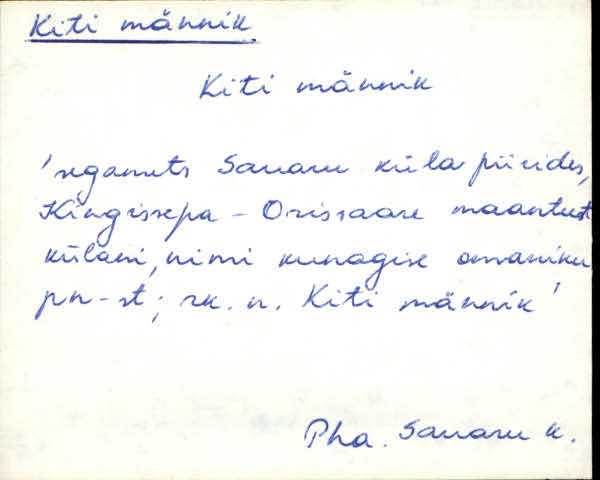 Kiti männik
Kiti männik
'segamets Sauaru küla piirides,
Kingissepa - Orissaare maanteest
külani, nimi kunagise omaniku
pn-st; rk. n. Kiti männik'
Pha. Sauaru k.